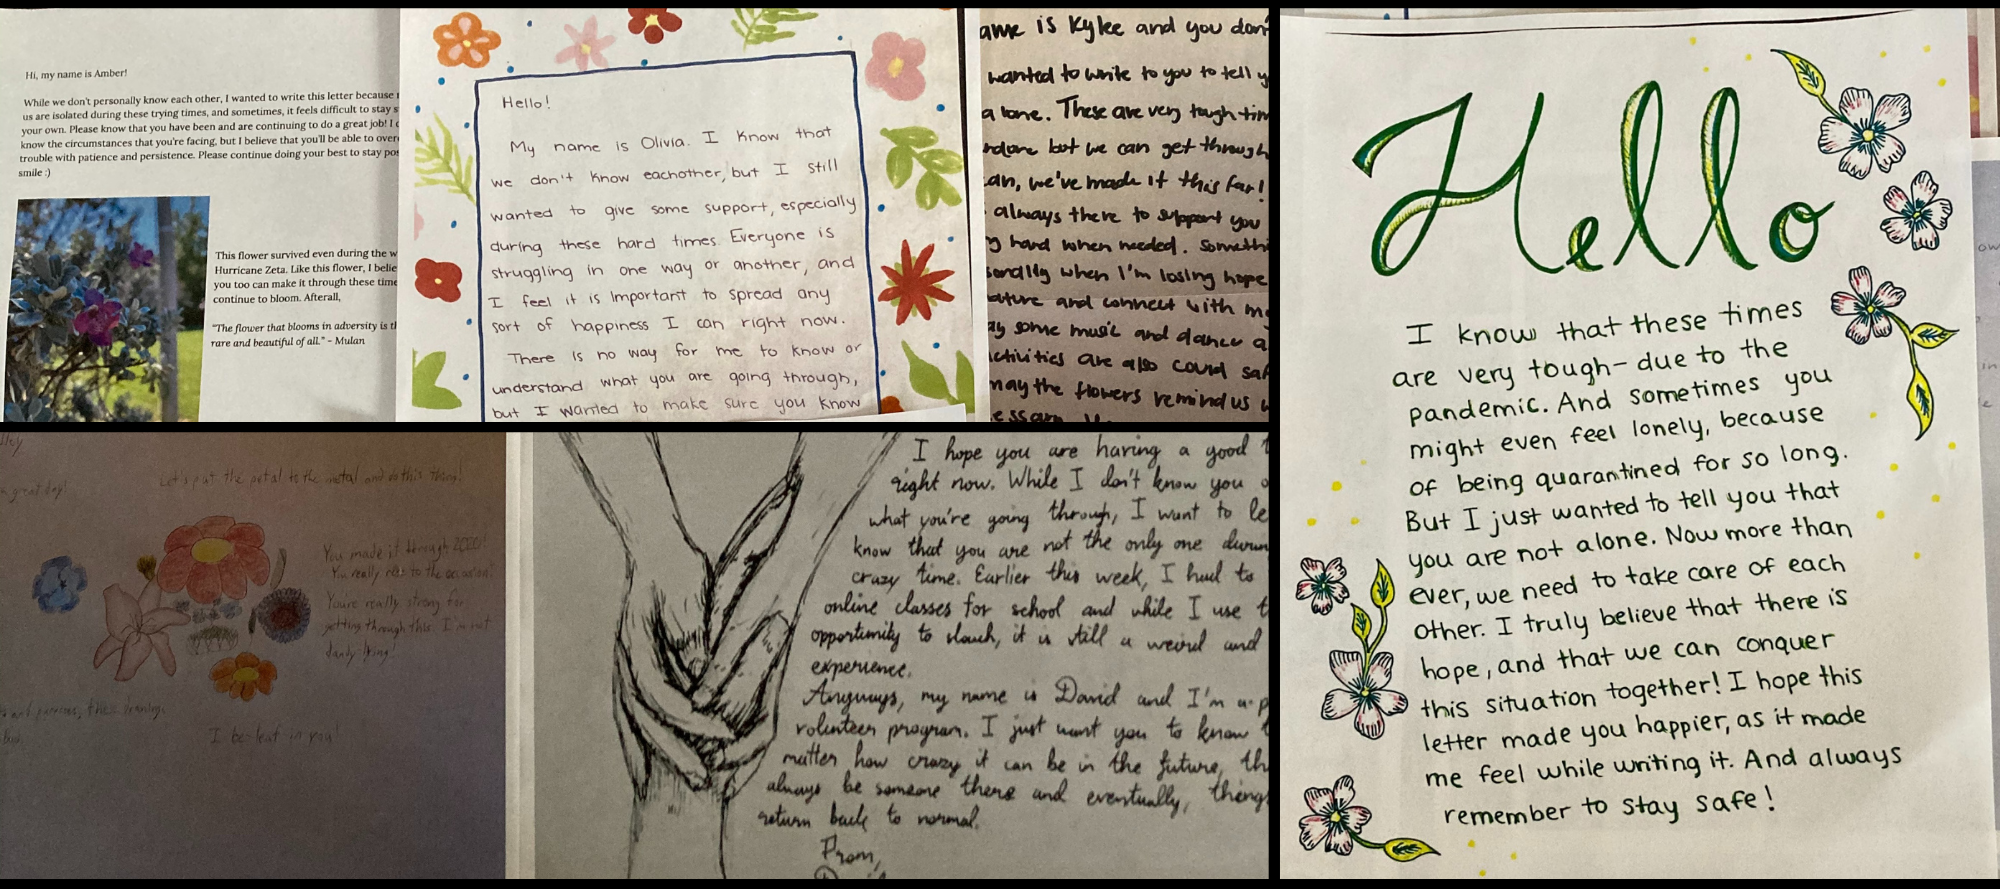 Hi, my name is Amber!
While we don't personally know each other, I wanted to write this letter because
us are isolated during these trying times, and sometimes, it feels difficult to stay
your own. Please know that you have been and are continuing to do a great job! I
know the circumstances that you're facing, but I believe that you'll be able to
trouble with patience and persistence. Please continue doing your best to stay
smile :)
This flower survived even during the
Hurricane Zeta. Like this flower, I
you too can make it through these
continue to bloom. Afterall,
"The flower that blooms in adversity is
rare and beautiful of all." - Mulan
Hello!
My name is Olivia. I know that
we don't know eachother, but I still
wanted to give some support, especially
during these hard times. Everyone is
struggling in one way or another, and
I feel it is important to spread any
sort of happiness I can right now.
There is no way for me to know or
understand what you are going through,
but I wanted to make sure you know
is Kylee and you
wanted to write to you to tell
These are very tough
but we can get through
we've made it this far!
always there to support you
hard when needed.
when I'm losing hope
and connect with
some music and dance
are also
may the flowers remind us
Hey
great day!
Let's put the petal to the metal and do this thing!
You made it through 2020!
You really rose to the occasion!
You're really strong for
getting through this. I'm not
dandy lying!
I be-leaf in you!
I hope you are having a good
right now. While I don't know you
what you're going through, I want to
know that you are not the only one
crazy time. Earlier this week, I had to
online classes for school and while I use
opportunity to slouch, it is still a weird and
experience.
Anyways, my name is David and I'm a
volunteer program. I just want you to know
matter how crazy it can be in the future,
always be someone there and eventually,
return back to normal.
From,
Hello
I know that these times
are very tough- due to the
pandemic. And sometimes you
might even feel lonely, because
of being quarantined for so long.
But I just wanted to tell you that
you are not alone. Now more than
ever, we need to take care of each
other. I truly believe that there is
hope, and that we can conquer
this situation together! I hope this
letter made you happier, as it made
me feel while writing it. And always
remember to stay safe!